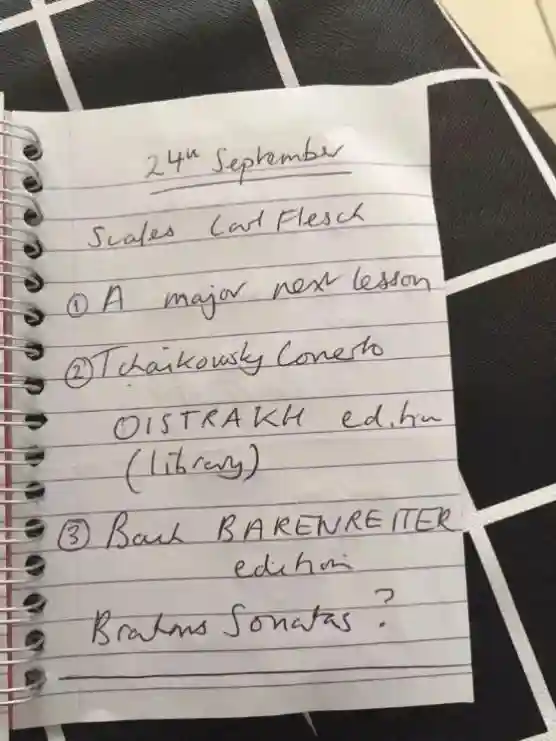 24th September
Scales Carl Flesch
① A major next lesson
② Tchaikovsky Concerto
OISTRAKH edition
(library)
③ Bach BARENREITER
edition
Brahms Sonatas ?